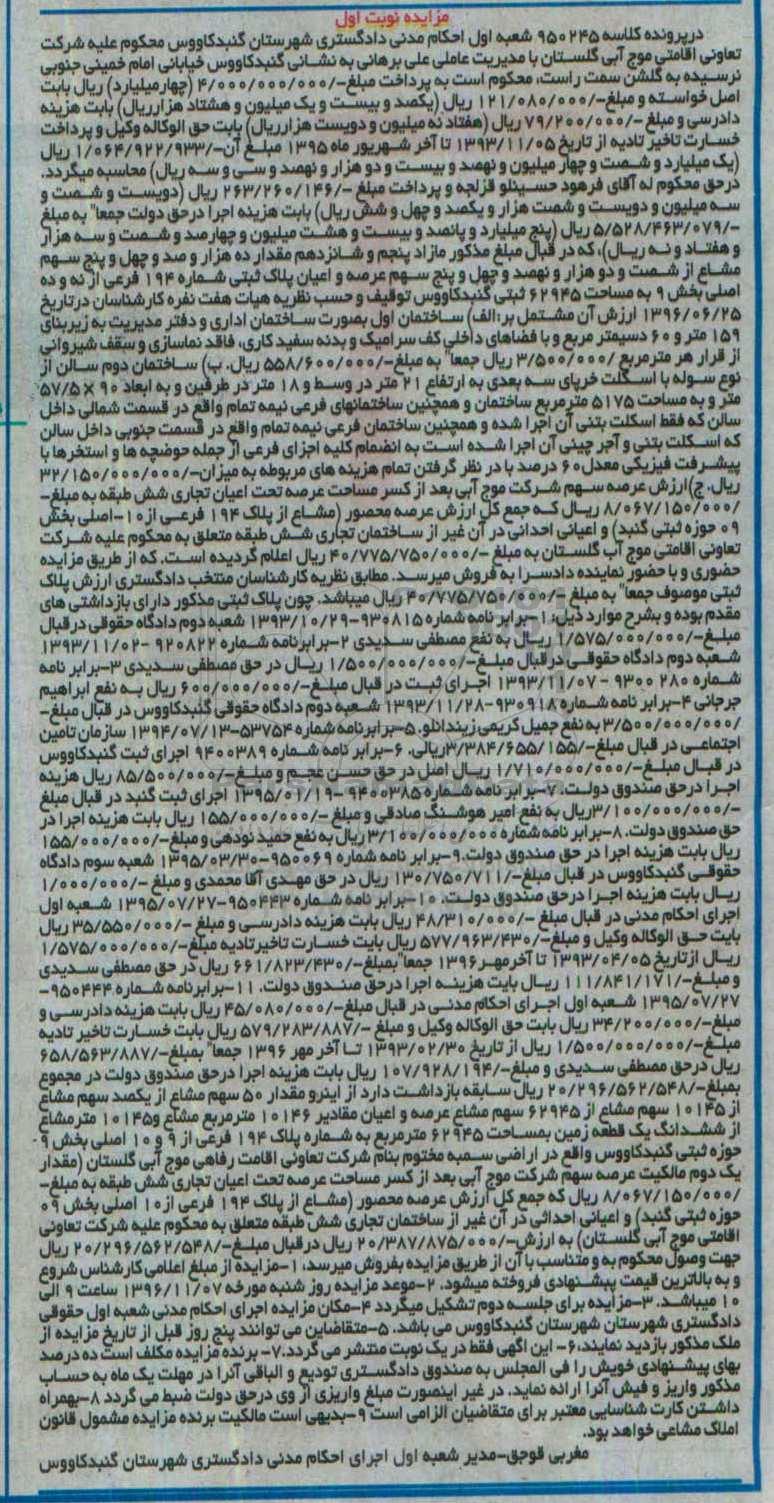 مزایده نوبت اول
درپرونده کلاسه ۹۵۰۲۴۵ شعبه اول احکام مدنی دادگستری شهرستان گنبدکاووس محکوم علیه شرکت
تعاونی اقامتی موج آبی گلستان با مدیریت عاملی علی برهانی به نشانی گنبدکاووس خیابانی امام خمینی جنوبی
نرسیده به گلشن سمت راست، محکوم است به پرداخت مبلغ-/۴/۰۰۰/۰۰۰/۰۰۰ (چهارمیلیارد) ریال بابت
اصل خواسته و مبلغ-/۱۲۱/۰۸۰/۰۰۰ ریال (یکصد و بیست و یک میلیون و هشتاد هزارریال) بابت هزینه
دادرسی و مبلغ -/۷۹/۲۰۰/۰۰۰ ریال (هفتاد نه میلیون و دویست هزارریال) بابت حق الوکاله وکیل و پرداخت
خسارت تاخیر تادیه از تاریخ ۱۳۹۳/۱۱/۰۵ تا آخر شهریور ماه ۱۳۹۵ مبلغ آن-/۱/۰۶۴/۹۲۲/۹۳۳ ریال
(یک میلیارد و شصت و چهار میلیون و نهصد و بیست و دو هزار و نهصد و سی و سه ریال) محاسبه میگردد.
درحق محکوم له آقای فرهود حسینلو قزلجه و پرداخت مبلغ -/۲۶۳/۲۶۰/۱۴۶ ریال (دویست و شصت و
سه میلیون و دویست و شصت هزار و یکصد و چهل و شش ریال) بابت هزینه اجرا درحق دولت جمعا" به مبلغ
-/۵/۵۲۸/۴۶۳/۰۷۹ ریال (پنج میلیارد و پانصد و بیست و هشت میلیون و چهارصد و شصت و سه هزار
و هفتاد و نه ریال)، که در قبال مبلغ مذکور مازاد پنجم و شانزدهم مقدار ده هزار و صد و چهل و پنج سهم
مشاع از شصت و دو هزار و نهصد و چهل و پنج سهم عرصه و اعیان پلاک ثبتی شماره ۱۹۴ فرعی از نه و ده
اصلی بخش ۹ به مساحت ۶۲۹۴۵ ثبتی گنبدکاووس توقیف و حسب نظریه هیات هفت نفره کارشناسان درتاریخ
۱۳۹۶/۰۶/۲۵ ارزش آن مشتمل بر:الف) ساختمان اول بصورت ساختمان اداری و دفتر مدیریت به زیربنای
۱۵۹ متر و ۶۰ دسیمتر مربع و با فضاهای داخلی کف سرامیک و بدنه سفید کاری، فاقد نماسازی و سقف شیروانی
از قرار هر مترمربع /۳/۵۰۰/۰۰۰ ریال جمعا" به مبلغ-/۵۵۸/۶۰۰/۰۰۰ ریال. ب) ساختمان دوم سالن از
نوع سوله با اسکلت خرپای سه بعدی به ارتفاع ۲۱ متر در وسط و ۱۸ متر در طرفین و به ابعاد ۹۰ × ۵۷/۵
متر و به مساحت ۵۱۷۵ مترمربع ساختمان و همچنین ساختمانهای فرعی نیمه تمام واقع در قسمت شمالی داخل
سالن که فقط اسکلت بتنی آن اجرا شده و همچنین ساختمان فرعی نیمه تمام واقع در قسمت جنوبی داخل سالن
که اسکلت بتنی و آجر چینی آن اجرا شده است به انضمام کلیه اجزای فرعی از جمله حوضچه ها و استخرها با
پیشرفت فیزیکی معدل ۶۰ درصد با در نظر گرفتن تمام هزینه های مربوطه به میزان-/۳۲/۱۵۰/۰۰۰/۰۰۰
ریال. ج)ارزش عرصه سهم شرکت موج آبی بعد از کسر مساحت عرصه تحت اعیان تجاری شش طبقه به مبلغ-
/۸/۰۶۷/۱۵۰/۰۰۰ ریال که جمع کل ارزش عرصه محصور (مشاع از پلاک ۱۹۴ فرعی از ۱۰-اصلی بخش
۰۹ حوزه ثبتی گنبد) و اعیانی احداثی در آن غیر از ساختمان تجاری شش طبقه متعلق به محکوم علیه شرکت
تعاونی اقامتی موج آب گلستان به مبلغ -/۴۰/۷۷۵/۷۵۰/۰۰۰ ریال اعلام گردیده است. که از طریق مزایده
حضوری و با حضور نماینده دادسرا به فروش میرسد. مطابق نظریه کارشناسان منتخب دادگستری ارزش پلاک
ثبتی موصوف جمعا" به مبلغ -/۴۰/۷۷۵/۷۵۰/۰۰۰ ریال میباشد. چون پلاک ثبتی مذکور دارای بازداشتی های
مقدم بوده و بشرح موارد ذیل: ۱-برابر نامه شماره ۹۳۰۸۱۵-۱۳۹۳/۱۰/۲۹ شعبه دوم دادگاه حقوقی درقبال
مبلغ-/۱/۵۷۵/۰۰۰/۰۰۰ ریال به نفع مصطفی سدیدی ۲-برابرنامه شماره ۹۲۰۸۲۲ -۱۳۹۳/۱۱/۰۲
شعبه دوم دادگاه حقوقی درقبال مبلغ-/۱/۵۰۰/۰۰۰/۰۰۰ ریال در حق مصطفی سدیدی ۳-برابر نامه
شماره ۲۸۰ ۹۳۰۰ - ۱۳۹۳/۱۱/۰۷ اجرای ثبت در قبال مبلغ-/۶۰۰/۰۰۰/۰۰۰ ریال به نفع ابراهیم
جرجانی ۴-برابر نامه شماره ۹۳۰۹۱۸-۱۳۹۳/۱۱/۲۸ شعبه دوم دادگاه حقوقی گنبدکاووس در قبال مبلغ-
/۳/۵۰۰/۰۰۰/۰۰۰ به نفع جمیل کریمی زیندانلو. ۵-برابرنامه شماره ۵۳۷۵۴-۱۳۹۴/۰۷/۱۳ سازمان تامین
اجتماعی در قبال مبلغ-/۳/۳۸۴/۶۵۵/۱۵۵ریالی. ۶-برابر نامه شماره ۹۴۰۰۳۸۹ اجرای ثبت گنبدکاووس
در قبال مبلغ-/۱/۷۱۰/۰۰۰/۰۰۰ ریال اصل در حق حسن عجم و مبلغ-/۸۵/۵۰۰/۰۰۰ ریال هزینه
اجرا درحق صندوق دولت. ۷-برابر نامه شماره ۹۴۰۰۳۸۵-۱۳۹۵/۰۱/۱۹ اجرای ثبت گنبد در قبال مبلغ
-/۳/۱۰۰/۰۰۰/۰۰۰ریال به نفع امیر هوشنگ صادقی و مبلغ -/۱۵۵/۰۰۰/۰۰۰ ریال بابت هزینه اجرا در
حق صندوق دولت. ۸-برابر نامه شماره ۳/۱۰۰/۰۰۰/۰۰۰ ریال به نفع حمید نودهی و مبلغ-/۱۵۵/۰۰۰/۰۰۰
ریال بابت هزینه اجرا در حق صندوق دولت.۹-برابر نامه شماره ۹۵۰۰۶۹-۱۳۹۵/۰۳/۳۰ شعبه سوم دادگاه
حقوقی گنبدکاووس در قبال مبلغ-/۱۳۰/۷۵۰/۷۱۱ ریال در حق مهدی آقا محمدی و مبلغ -/۱/۰۰۰/۰۰۰
ریال بابت هزینه اجرا درحق صندوق دولت. ۱۰-برابر نامه شماره ۹۵۰۴۴۳-۱۳۹۵/۰۷/۲۷ شعبه اول
اجرای احکام مدنی در قبال مبلغ -/۴۸/۳۱۰/۰۰۰ ریال بابت هزینه دادرسی و مبلغ -/۳۵/۵۵۰/۰۰۰ ریال
بابت حق الوکاله وکیل و مبلغ-/۵۷۷/۹۶۳/۴۳۰ ریال بابت خسارت تاخیرتادیه مبلغ-/۱/۵۷۵/۰۰۰/۰۰۰
ریال ازتاریخ ۱۳۹۳/۰۴/۰۵ تا آخرمهر۱۳۹۶ جمعا"بمبلغ-/۶۶۱/۸۲۳/۴۳۰ ریال در حق مصطفی سدیدی
و مبلغ-/۱۱۱/۸۴۱/۱۷۱ ریال بابت هزینه اجرا درحق صندوق دولت. ۱۱-برابرنامه شماره ۹۵۰۴۴۴-
۱۳۹۵/۰۷/۲۷ شعبه اول اجرای احکام مدنی در قبال مبلغ-/۴۵/۰۸۰/۰۰۰ ریال بابت هزینه دادرسی و
مبلغ-/۳۴/۲۰۰/۰۰۰ ریال بابت حق الوکاله وکیل و مبلغ -/۵۷۹/۲۸۳/۸۸۷ ریال بابت خسارت تاخیر تادیه
مبلغ-/۱/۵۰۰/۰۰۰/۰۰۰ ریال از تاریخ ۱۳۹۳/۰۲/۳۰ تا آخر مهر ۱۳۹۶ جمعا" بمبلغ-/۶۵۸/۵۶۳/۸۸۷
ریال درحق مصطفی سدیدی و مبلغ-/۱۰۷/۹۲۸/۱۹۴ ریال بابت هزینه اجرا درحق صندوق دولت در مجموع
بمبلغ-/۲۰/۲۹۶/۵۶۲/۵۴۸ ریال سابقه بازداشت دارد از اینرو مقدار ۵۰ سهم مشاع از یکصد سهم مشاع
از ۱۰۱۴۵ سهم مشاع از ۶۲۹۴۵ سهم مشاع عرصه و اعیان مقادیر ۱۰۱۴۶ مترمربع مشاع و۱۰۱۴۵ مترمشاع
از ششدانگ یک قطعه زمین بمساحت ۶۲۹۴۵ مترمربع به شماره پلاک ۱۹۴ فرعی از ۹ و ۱۰ اصلی بخش ۹-
حوزه ثبتی گنبدکاووس واقع در اراضی سمبه مختوم بنام شرکت تعاونی اقامت رفاهی موج آبی گلستان (مقدار
یک دوم مالکیت عرصه سهم شرکت موج آبی بعد از کسر مساحت عرصه تحت اعیان تجاری شش طبقه به مبلغ-
/۸/۰۶۷/۱۵۰/۰۰۰ ریال که جمع کل ارزش عرصه محصور (مشاع از پلاک ۱۹۴ فرعی از ۱۰ اصلی بخش ۰۹
حوزه ثبتی گنبد) و اعیانی احداثی در آن غیر از ساختمان تجاری شش طبقه متعلق به محکوم علیه شرکت تعاونی
اقامتی موج آبی گلستان) به ارزش-/۲۰/۳۸۷/۸۷۵/۰۰۰ ریال درقبال مبلغ-/۲۰/۲۹۶/۵۶۲/۵۴۸ ریال
جهت وصول محکوم به و متناسب با آن از طریق مزایده بفروش میرسد، ۱-مزایده از مبلغ اعلامی کارشناس شروع
و به بالاترین قیمت پیشنهادی فروخته میشود. ۲-موعد مزایده روز شنبه مورخه ۱۳۹۶/۱۱/۰۷ ساعت ۹ الی
۱۰ میباشد. ۳-مزایده برای جلسه دوم تشکیل میگردد ۴-مکان مزایده اجرای احکام مدنی شعبه اول حقوقی
دادگستری شهرستان شهرستان گنبدکاووس می باشد. ۵-متقاضاین می توانند پنج روز قبل از تاریخ مزایده از
ملک مذکور بازدید نمایند،۶- این اگهی فقط در یک نوبت منتشر می گردد.۷- برنده مزایده مکلف است ده درصد
بهای پیشنهادی خویش را فی المجلس به صندوق دادگستری تودیع و الباقی آنرا در مهلت یک ماه به حساب
مذکور واریز و فیش آنرا ارائه نماید. در غیر اینصورت مبلغ واریزی از وی درحق دولت ضبط می گردد ۸-بهمراه
داشتن کارت شناسایی معتبر برای متقاضیان الزامی است ۹-بدیهی است مالکیت برنده مزایده مشمول قانون
املاک مشاعی خواهد بود.
مغربی قوجق-مدیر شعبه اول اجرای احکام مدنی دادگستری شهرستان گنبدکاووس